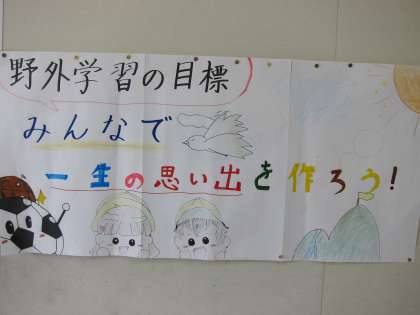 野外学習の目標
みんなで
一生の思い出を作ろう！